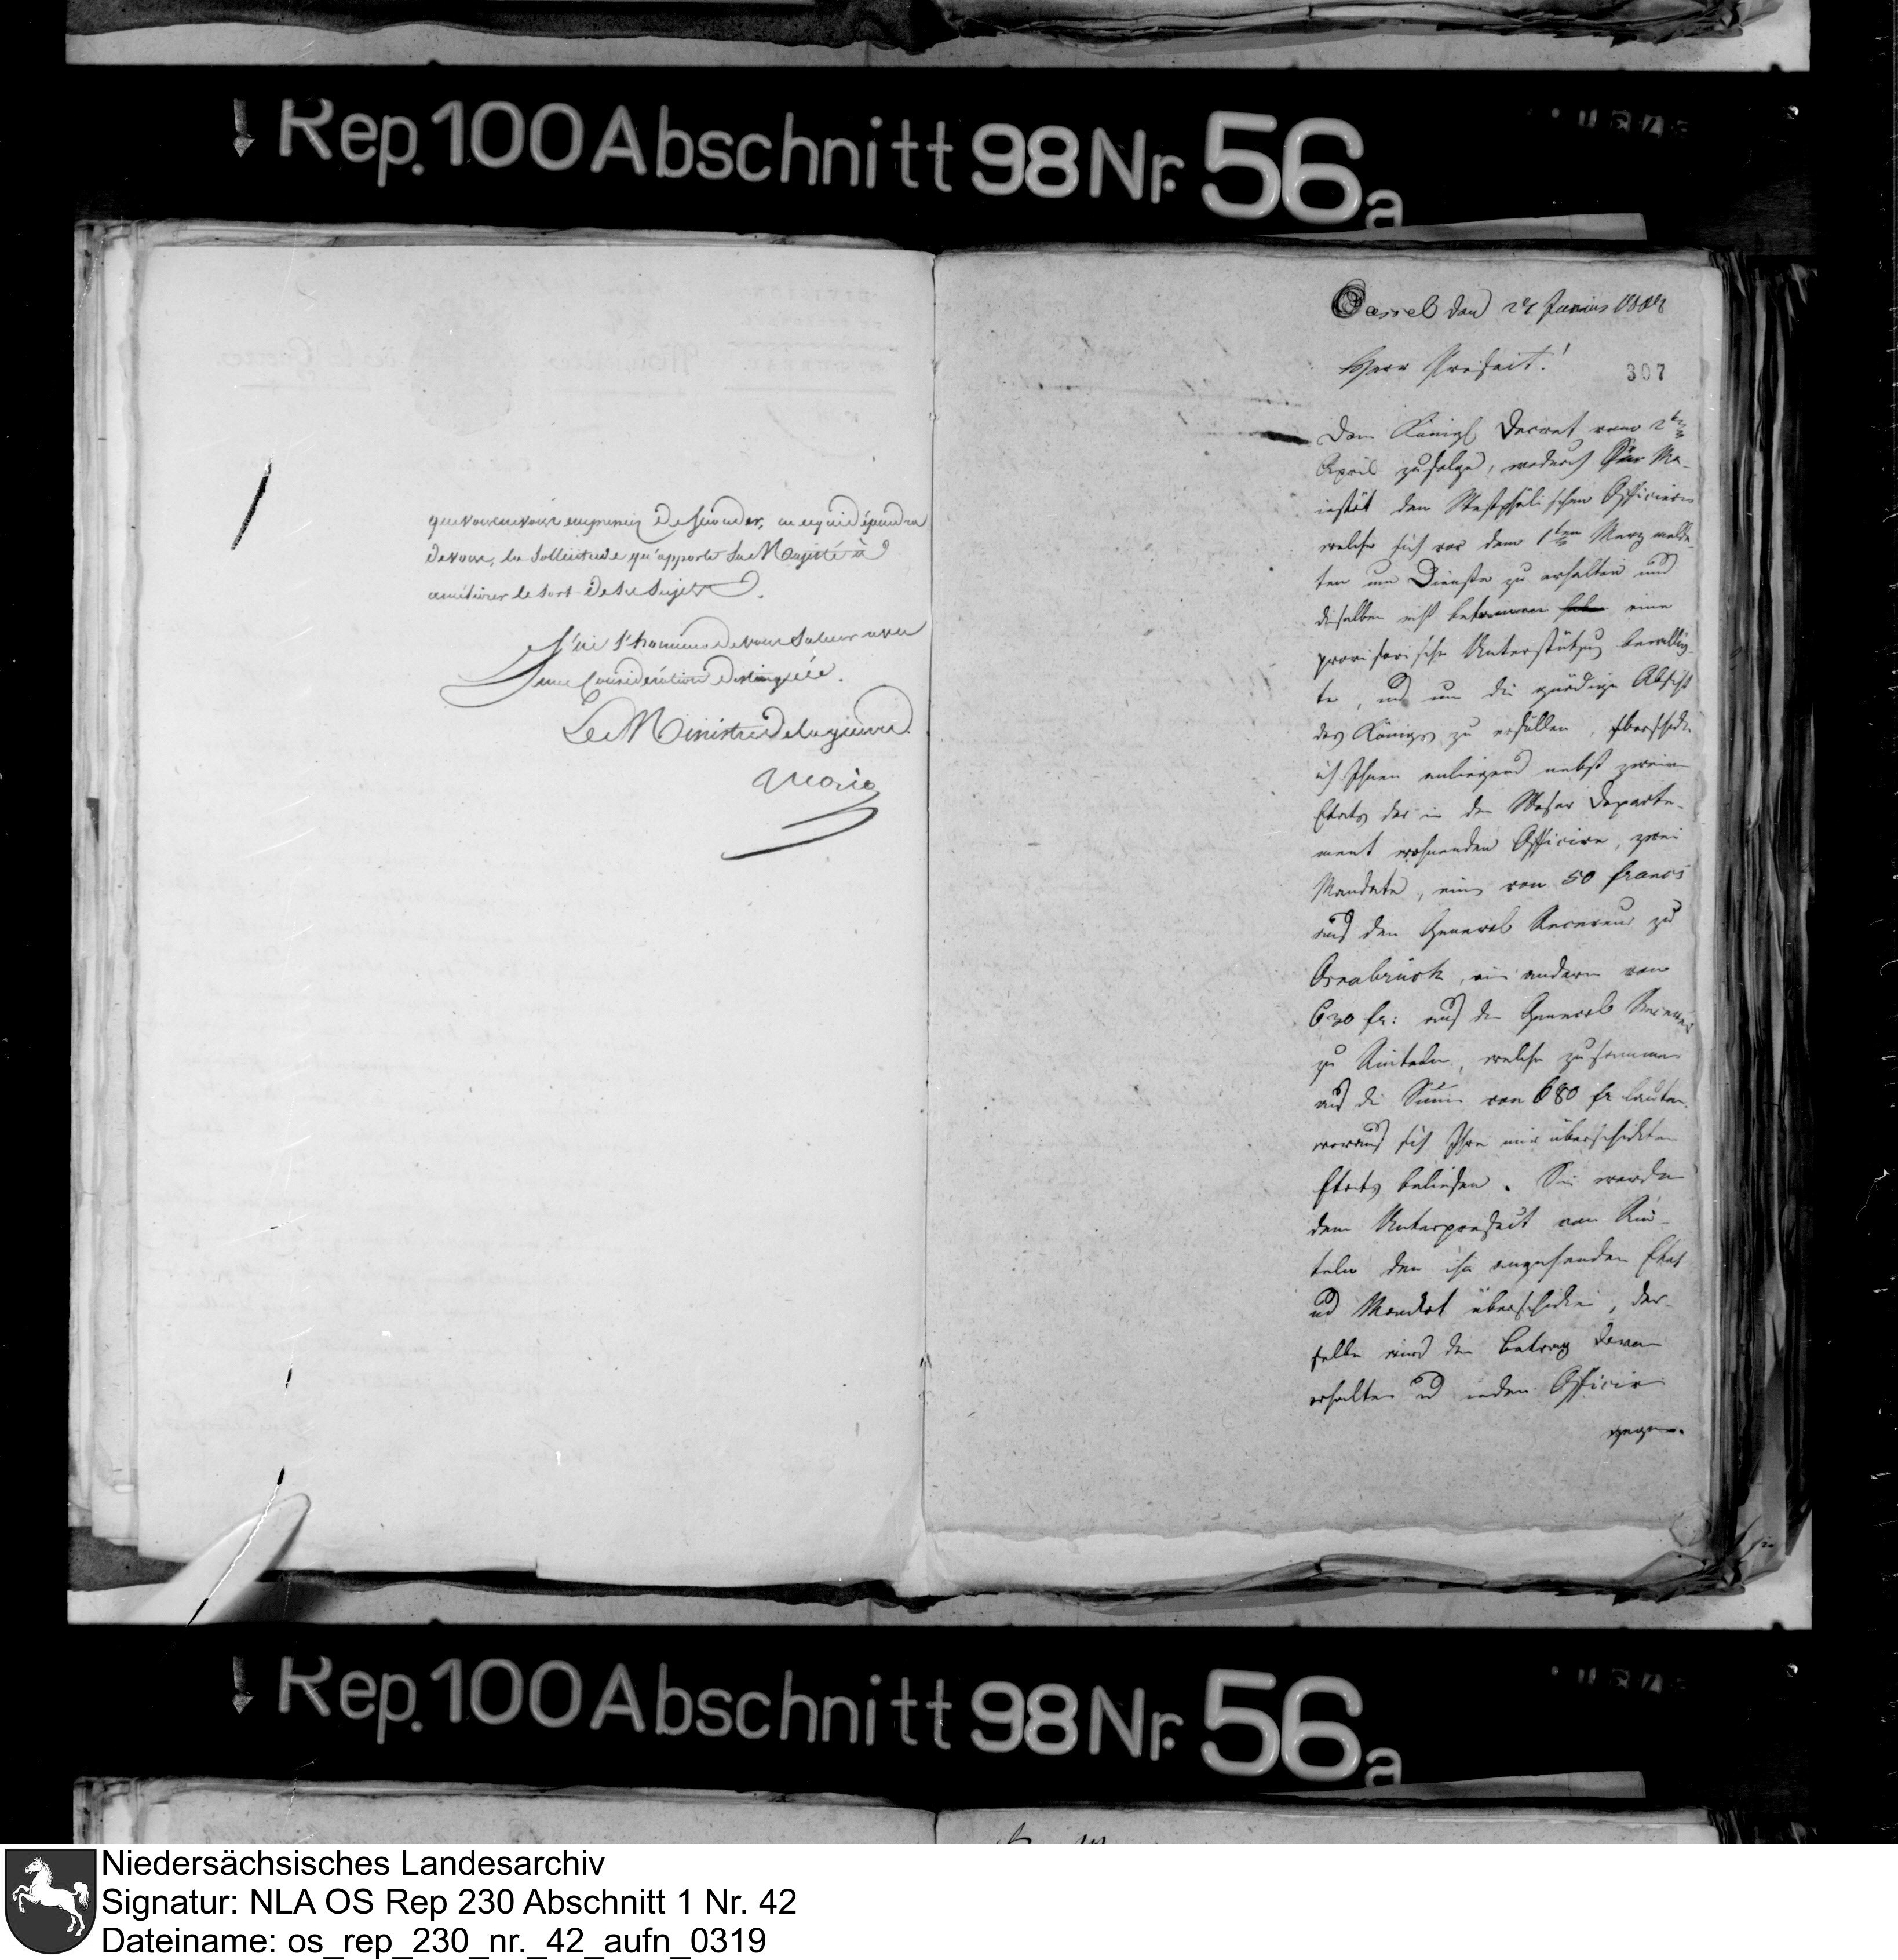 Rep. 100 Abschnitt 98 Nr. 56a
que vous vous empressiez de seconder, en ce qui dépendra
de vous, la sollicitude qu'apporte Sa Majesté à
améliorer le sort de ses sujets.
J'ai l'honneur de vous saluer avec
une considération distinguée.
Le Ministre de la guerre.
Morio
Cassel den 24 Junius 1808
Herr Prefect!
307
Dem Königl. Decret vom 2ten
April zufolge, wodurch Sr. Ma-
jestät den Westphälischen Officieren
welche sich vor dem 1ten Merz melde-
ten um Dienste zu erhalten und
dieselben nicht bekommen eine
provisorische Unterstützung bewillig-
te, und um die gnädige Absicht
des Königs zu erfüllen, überschicke
ich Ihnen anliegend nebst zweien
Etats der in dem Weser Departe-
ment wohnenden Officire, zwei
Mandate, eins von 50 francs
auf den General Receveur zu
Osnabrück, ein anderes von
630 fr: auf den General Receveur
zu Rinteln, welche zusammen
auf die Summe von 680 fr lauten,
worauf sich Ihre mir überschickten
Etats beliefen. Sie werden
dem Unterprefect von Rin-
teln den ihn angehenden Etat
und Mandat überschicken, der-
selbe wird den Betrag davon
erhalten und jedem Officir
gegen
Rep. 100 Abschnitt 98 Nr. 56a
Niedersächsisches Landesarchiv
Signatur: NLA OS Rep 230 Abschnitt 1 Nr. 42
Dateiname: os_rep_230_nr._42_aufn_0319